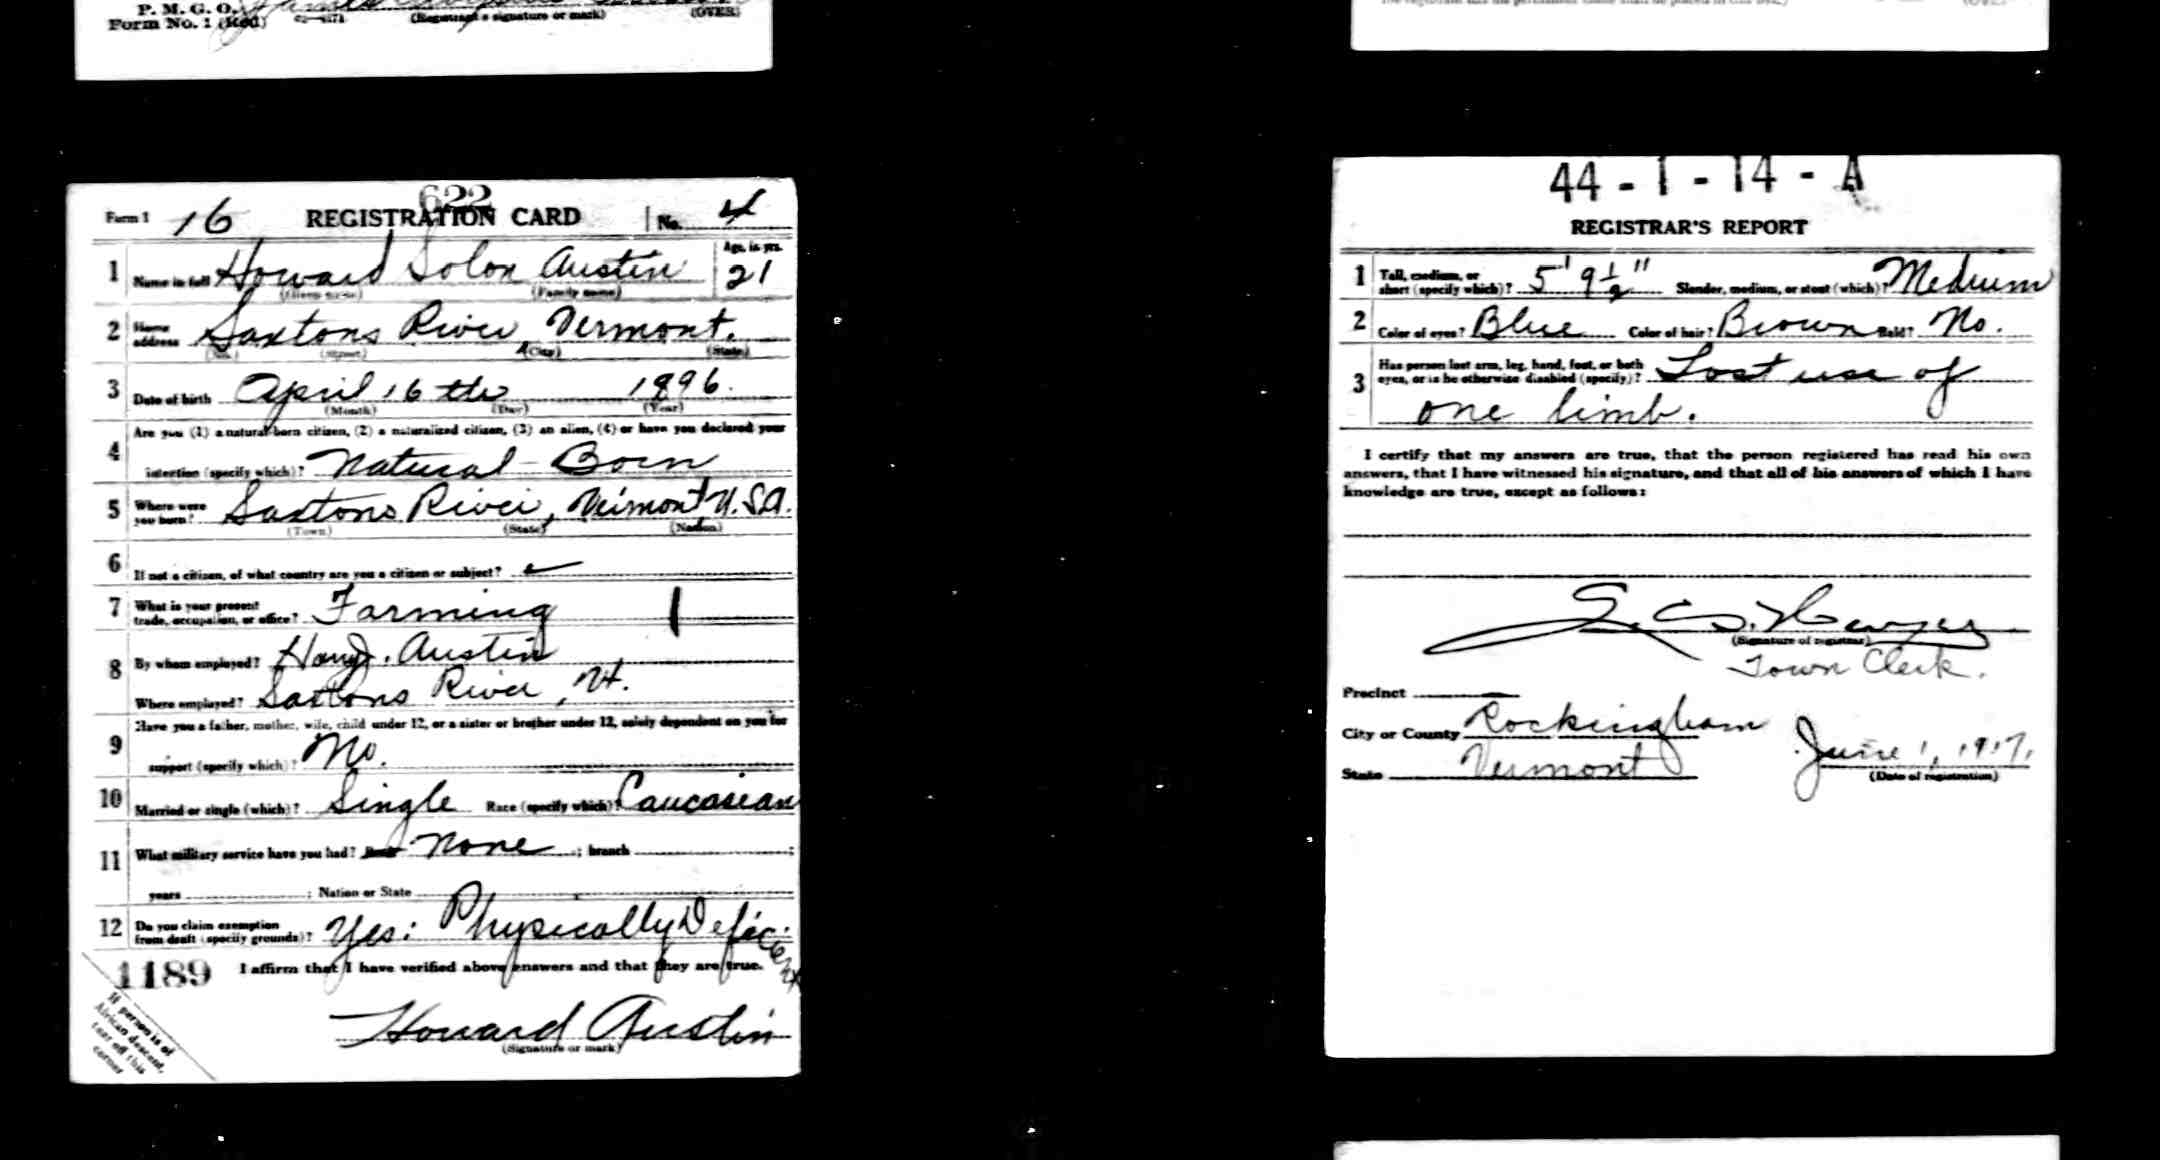 P. M. G. O.
Form No. 1 (Red) (Registrant's signature or mark) (OVER)
622
Form 1 16 REGISTRATION CARD No. 4
1 Name in full Howard Solon Austin Age, in yrs. 21
(Given name) (Family name)
2 Home address Saxtons River, Vermont.
(No.) (Street) (City) (State)
3 Date of birth April 16 the 1896.
(Month) (Day) (Year)
4 Are you (1) a natural-born citizen, (2) a naturalized citizen, (3) an alien, (4) or have you declared your
intention (specify which)? Natural-Born
5 Where were you born? Saxtons River, Vermont U.S.A.
(Town) (State) (Nation)
6 If not a citizen, of what country are you a citizen or subject?
7 What is your present trade, occupation, or office? Farming
8 By whom employed? Austin
Where employed? Saxtons River, Vt.
9 Have you a father, mother, wife, child under 12, or a sister or brother under 12, solely dependent on you for
support (specify which)? No.
10 Married or single (which)? Single Race (specify which)? Caucasian
11 What military service have you had? Rank None ; branch ;
years ; Nation or State
12 Do you claim exemption from draft (specify grounds)? Yes: Physically Deficient
1189 I affirm that I have verified above answers and that they are true.
Howard Austin
(Signature or mark)
If person is of
African descent,
tear off this
corner
44-1-14-A
REGISTRAR'S REPORT
1 Tall, medium, or short (specify which)? 5' 9½" Slender, medium, or stout (which)? Medium
2 Color of eyes? Blue Color of hair? Brown Bald? No.
3 Has person lost arm, leg, hand, foot, or both eyes, or is he otherwise disabled (specify)? Lost use of
one limb.
I certify that my answers are true, that the person registered has read his own
answers, that I have witnessed his signature, and that all of his answers of which I have
knowledge are true, except as follows:
(Signature of registrar)
Town Clerk.
Precinct
City or County Rockingham
State Vermont
June 1, 1917.
(Date of registration)